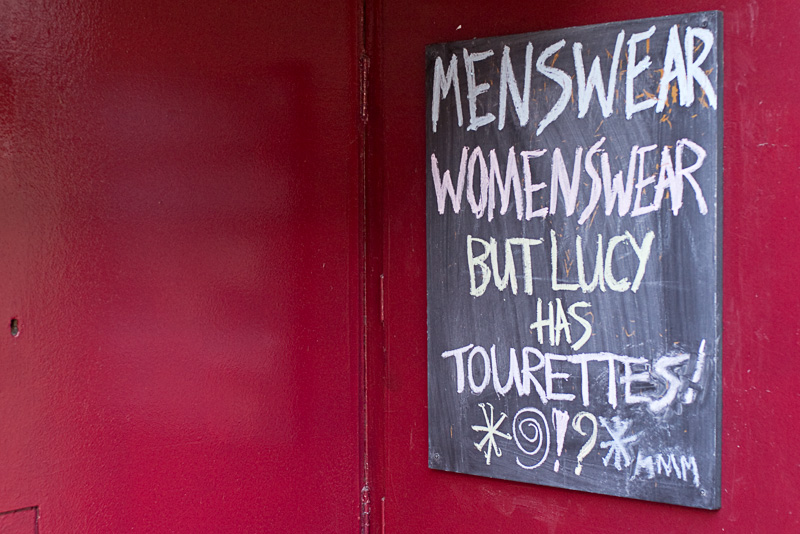 MENSWEAR
WOMENSWEAR
BUT LUCY
HAS
TOURETTES!
*@!?*MMM